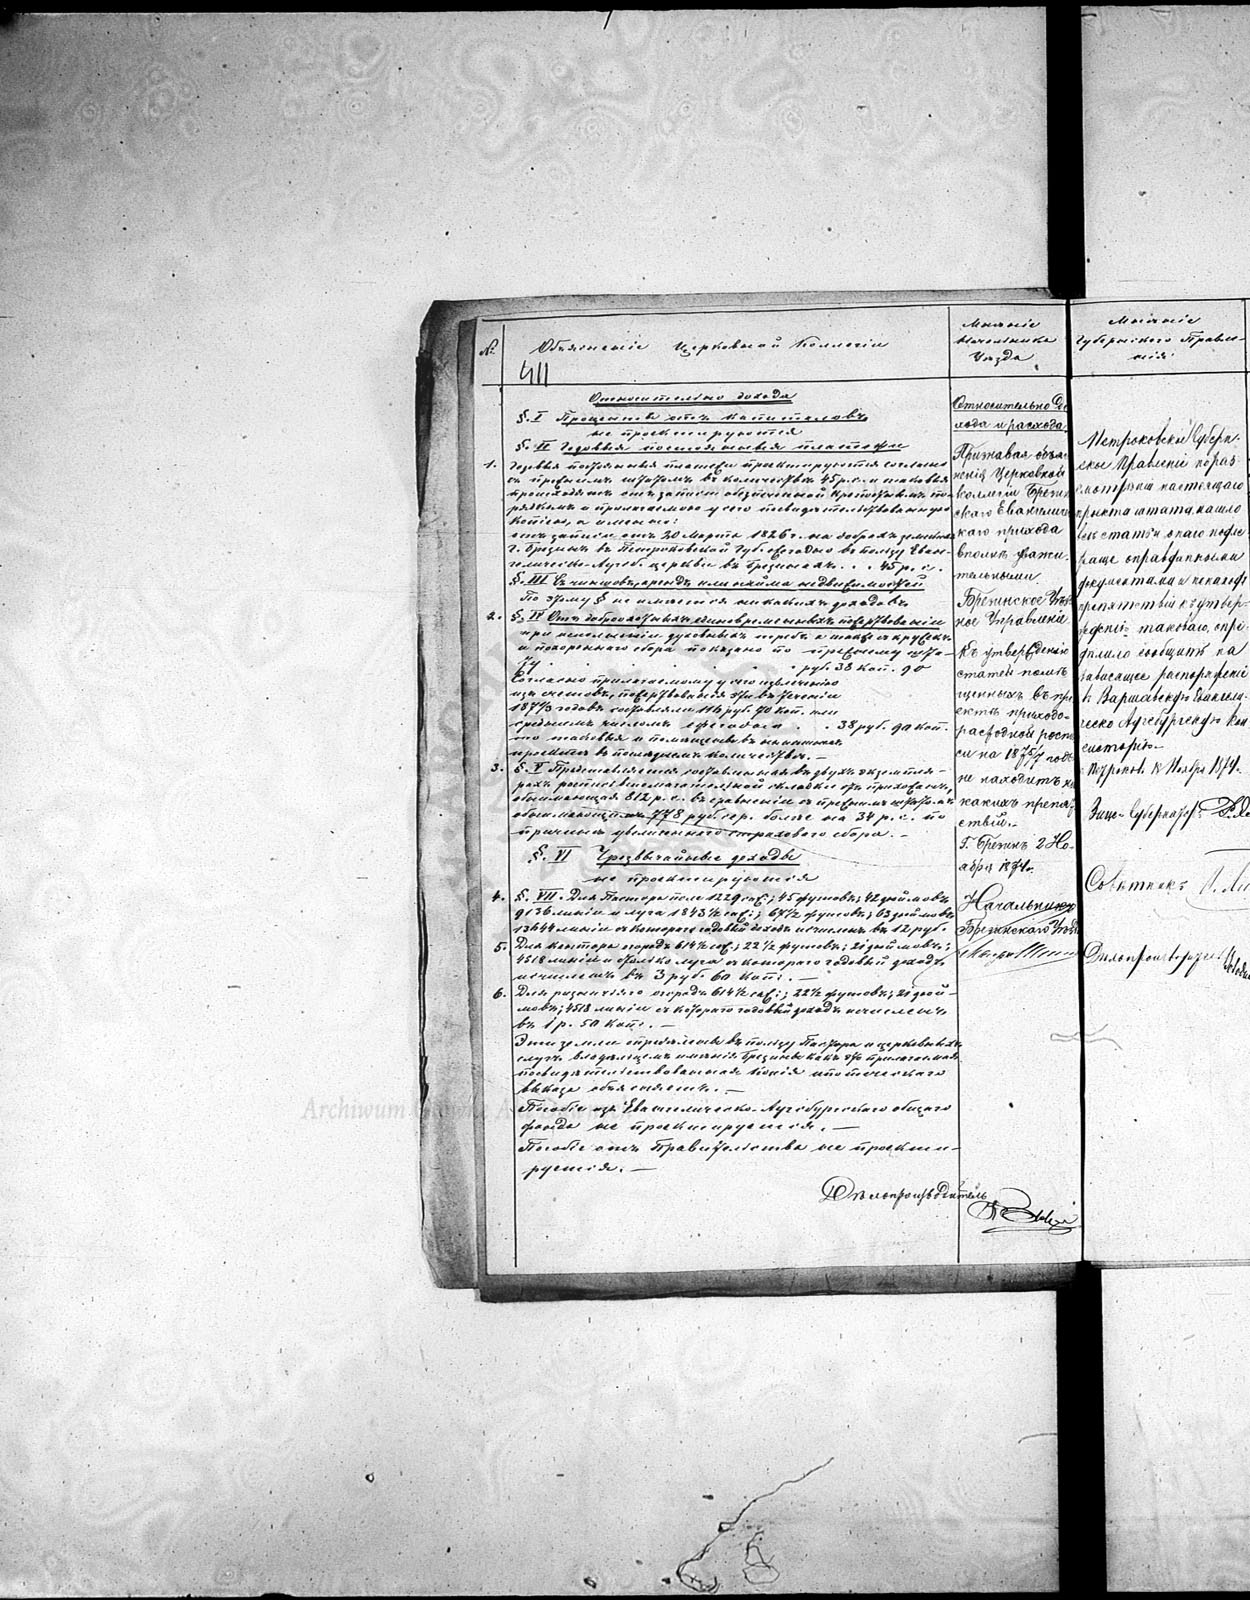 №
Объясненіе Церковной Коллегіи
411
Относительно дохода
§. I Проценты отъ капиталовъ
не проектируются
§. II Годовыя постоянныя платежи
1. Годовыя постоянныя платежи проектируются согласно
съ прежнимъ штатомъ въ количествѣ 45 р. с. и таковыя
происходятъ отъ записи обезпеченной
и прилагаемою у сего
копіею, а именно:
отъ записи отъ 20 Марта 1826 г. на добрахъ земскихъ
г. Брезины въ Петроковской Губ. ежегодно въ пользу Еван-
гелическо-Аугсб. церкви въ Брезинахъ . . . 45 р. с.
§. III Съ чиншовъ, арендъ или найма недвижимостей
По этому § не имѣется никакихъ доходовъ
2. §. IV Отъ добровольныхъ единовременныхъ пожертвованій
при исполненіи духовныхъ требъ а также съ кружекъ
и похороннаго сбора показано по прежнему шта-
ту . . . . руб. 38 коп. 90
Согласно прилагаемому у сего извлеченію
изъ счетовъ, пожертвованія эти въ теченіи
187 1/3 годовъ составляли 116 руб. 70 коп. или
среднимъ числомъ ежегодно . . 38 руб. 90 коп.
то таковыя и помѣщены въ нынѣшнемъ
проектѣ въ послѣднемъ количествѣ. —
3. §. V Представляется составленная въ двухъ экземпля-
рахъ роспись складки отъ прихожанъ,
обнимающая 812 р. с. въ сравненіи съ прежнимъ штатомъ
обнимающимъ 778 руб. сер. болѣе на 34 р. с. по
причинѣ увеличеннаго страховаго сбора. —
§. VI Чрезвычайные доходы
не проектируются
4. §. VII. Для Пастора поля 1229 саж.; 45 футовъ; 42 дюймовъ
9136 линіи и луга 1843 1/2 саж.; 67 1/2 футовъ; 63 дюймовъ
13644 линіи съ котораго годовый доходъ исчисленъ въ 12 руб.
5. Для кантора огородъ 614 1/2 саж.; 22 1/2 футовъ; 21 дюймовъ;
4518 линіи и столько луга съ котораго годовый доходъ
исчисленъ въ 3 руб. 60 коп. —
6. Для ризничаго огородъ 614 1/2 саж.; 22 1/2 футовъ; 21 дюй-
мовъ; 4518 линіи съ котораго годовый доходъ исчисленъ
въ 1 р. 50 коп. —
Эти земли опредѣлены въ пользу Пастора и церковныхъ
слугъ владѣльцемъ имѣнія Брезины какъ это прилагаемая
посвидѣтельствованная копія ипотеческаго
выказа объясняетъ. —
Пособіе изъ Евангелическо-Аугсбургскаго общаго
фонда не проектируется. —
Пособіе отъ Правительства не проекти-
руется. —
Дѣлопроизводитель
Мнѣніе
Начальника
Уѣзда
Относительно до-
хода и расхода
Признавая объяс-
ненія Церковной
Коллегіи Брезин
скаго Евангеличес
каго прихода
вполнѣ уважи-
тельными.
Брезинское Уѣзд
ное Управленіе
къ утвержденію
статей помѣ-
щенныхъ въ про
ектѣ приходо-
расходной роспи
си на 187 5/7 годъ
не находитъ ни
какихъ препят
ствій. —
Г. Брезинъ 2 Но-
ября 1874 г.
Начальникъ
Брезинскаго Уѣзда
Мнѣніе
Губернскаго Правле-
нія
Петроковское Губерн-
ское Правленіе по раз-
смотрѣніи настоящаго
проекта штата, нашло
всѣ статьи онаго
оправданными
документами и ненаходя
препятствій къ утвер-
жденію таковаго, опре-
дѣлило сообщить на
зависящее распоряженіе
въ Варшавскую Евангели-
ческо Аугсбургскую Кон
систорію. —
г. Петроковъ. 12 Ноября 1874 г.
Вице-Губернаторъ
Совѣтникъ
Дѣлопроизводитель
Archiwum Główne Akt Dawnych